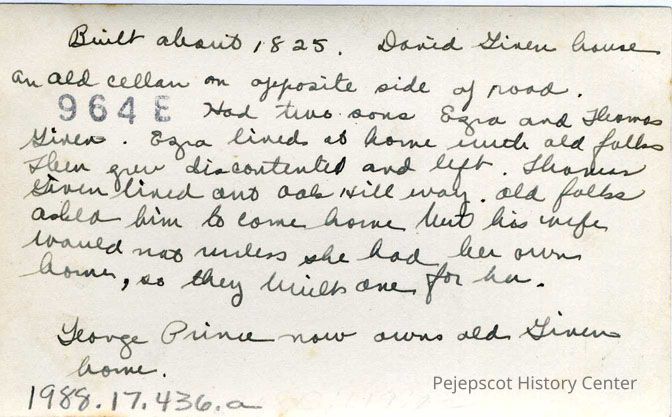 Built about 1825. David Given house
an old cellar on opposite side of road.
964E Had two sons Ezra and Thomas
Given. Ezra lived at home with old folks
then grew discontented and left. Thomas
Given lived out Oak Hill way. Old folks
asked him to come home but his wife
would not unless she had her own
home, so they built one for her.
George Prince now owns old Given
home.
1988.17.436.a
Pejepscot History Center